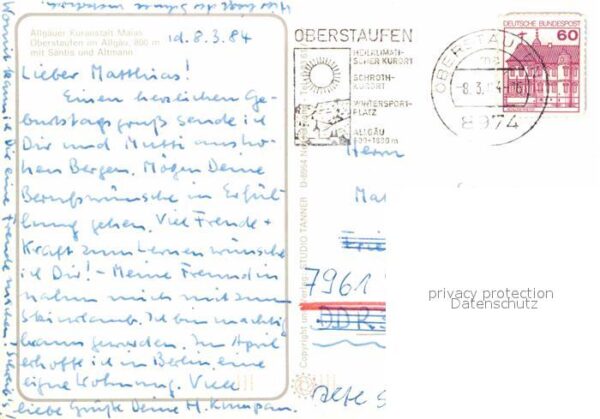 Allgäuer Kuranstalt Malas
Oberstaufen im Allgäu, 800 m
mit Säntis und Altmann
d. 8.3.84
Lieber Matthias!
Einen herzlichen Ge-
burtstagsgruß sende ich
Dir und Mutti aus ho-
hen Bergen. Mögen Deine
Berufswünsche in Erfül-
lung gehen. Viel Freude +
Kraft zum Lernen wünsche
ich Dir! - Meine Freundin
nahm mich mit zum
Skiurlaub. Ich bin mächtig
braun geworden. Im April
erhoffe ich in Berlin eine
eigne Wohnung. Viele
liebe Grüße Deine
Womit kann ich Dir eine Freude machen? Schreib's
OBERSTAUFEN
HEILKLIMATI-
SCHER KURORT
SCHROTH-
KURORT
WINTERSPORT-
PLATZ
ALLGÄU
OBERSTAUFEN
-8.3.84
8974
DEUTSCHE BUNDESPOST
60
Copyright und Verlag STUDIO TANNER
Herrn
7961
DDR
privacy protection
Datenschutz